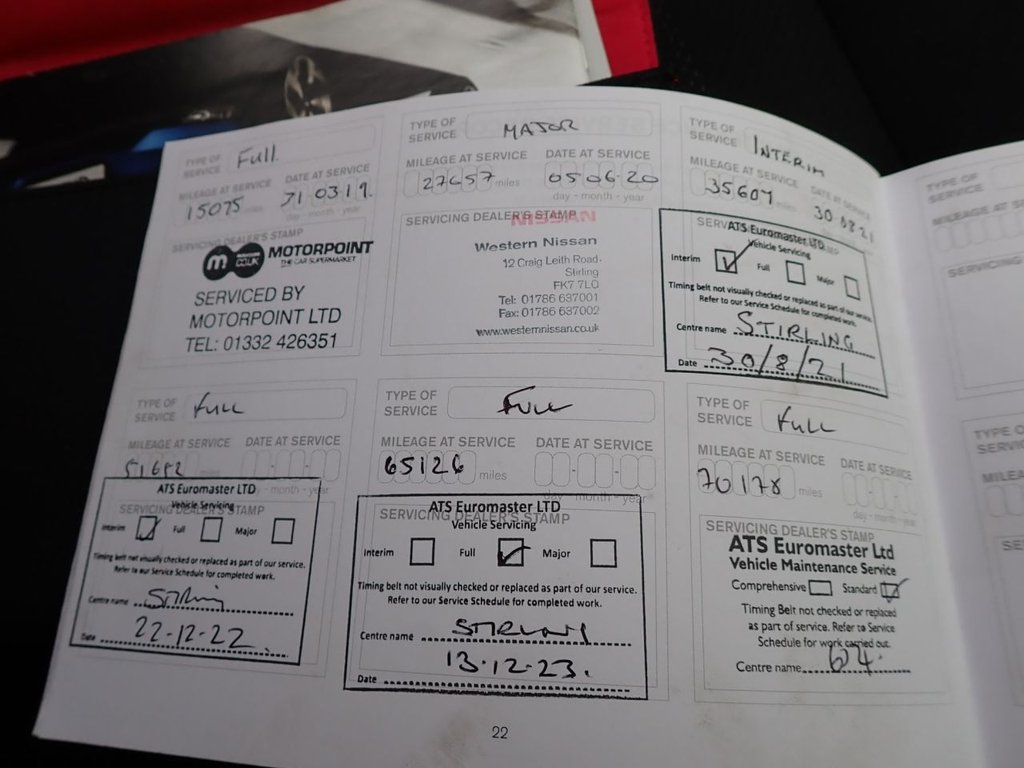 TYPE OF SERVICE Full
MILEAGE AT SERVICE DATE AT SERVICE
15075 miles 31 03 19
day - month - year
SERVICING DEALER'S STAMP
m MOTORPOINT
.CO.UK THE CAR SUPERMARKET
SERVICED BY
MOTORPOINT LTD
TEL: 01332 426351
TYPE OF SERVICE MAJOR
MILEAGE AT SERVICE DATE AT SERVICE
27657 miles 05 06 20
day - month - year
SERVICING DEALER'S STAMP
NISSAN
Western Nissan
12 Craig Leith Road
Stirling
FK7 7LQ
Tel: 01786 637001
Fax: 01786 637002
www.westernnissan.co.uk
TYPE OF SERVICE INTERIM
MILEAGE AT SERVICE DATE AT SERVICE
35607 miles 30 08 21
ATS Euromaster LTD
Vehicle Servicing
Interim Full Major
Timing belt not visually checked or replaced as part of our service.
Refer to our Service Schedule for completed work.
Centre name STIRLING
Date 30/8/21
TYPE OF SERVICE Full
MILEAGE AT SERVICE DATE AT SERVICE
51682 miles
day - month - year
SERVICING DEALER'S STAMP
ATS Euromaster LTD
Vehicle Servicing
Interim Full Major
Timing belt not visually checked or replaced as part of our service.
Refer to our Service Schedule for completed work.
Centre name Stirling
Date 22-12-22
TYPE OF SERVICE Full
MILEAGE AT SERVICE DATE AT SERVICE
65126 miles
day month year
SERVICING DEALER'S STAMP
ATS Euromaster LTD
Vehicle Servicing
Interim Full Major
Timing belt not visually checked or replaced as part of our service.
Refer to our Service Schedule for completed work.
Centre name STIRLING
13.12.23.
Date
TYPE OF SERVICE FULL
MILEAGE AT SERVICE DATE AT SERVICE
70178 miles
day - month - year
SERVICING DEALER'S STAMP
ATS Euromaster Ltd
Vehicle Maintenance Service
Comprehensive Standard
Timing Belt not checked or replaced
as part of service. Refer to Service
Schedule for work carried out.
Centre name 64
22